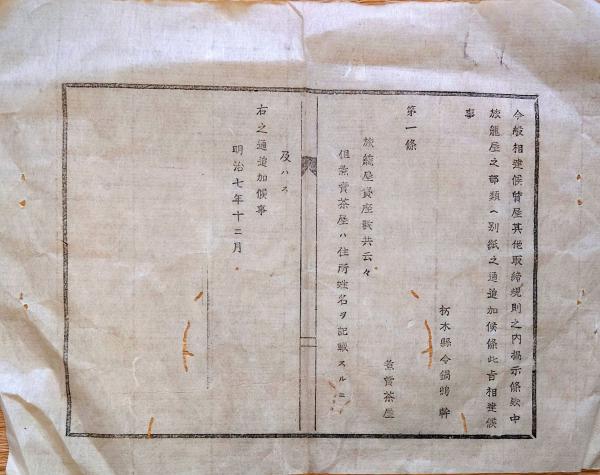 今般相達候貸屋其他取締規則之内掲示條欵中
旅籠屋之部類ヘ別紙之通追加候條此旨相達候
事
栃木縣令鍋嶋幹
第一條
煮賣茶屋
旅籠屋貸座敷共云々
但煮賣茶屋ハ住所姓名ヲ記載スルニ
及ハス
右之通追加候事
明治七年十二月